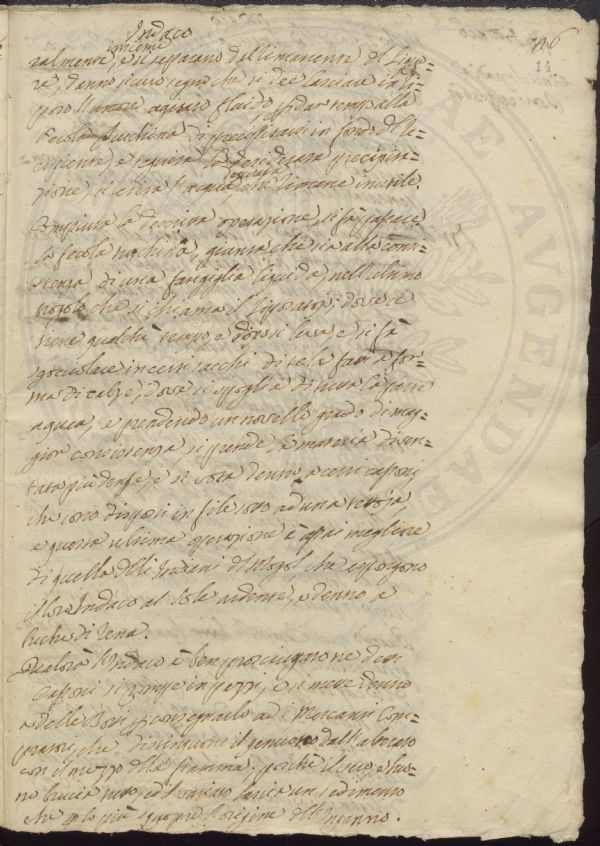 Indaco
116
14
ralmente insieme, e si separano dell'rimanente del Liquo=
re, danno sicuro segno che si dee lasciare in ri=
poso l'umore agitato fluido, p dar tempo alla
fecola turchina di precipitarsi in fondo del re=
cipiente, e seguita la desiderata precipita=
zione, si cava l'acqua, che rimane inutile.
Compiuta la divisata operazione, si fa passare
la fecola turchina, giunta che sia alla consi=
stenza di una fanghiglia liquida, nell'ultimo
truogolo che si chiama il riposatojo; dove si
tiene qualche tempo e di poi si leva e si fà
sgocciolare in certi sacchi di tela fatti a for=
ma di calze, dove si spoglia di nuova la parte
aquea, e prendendo un novello grado di mag=
gior consistenza, si prende la materia diven=
tata più densa, e si vota dentro a certi cassoni,
che sono disposti in file sotto ad una tettoja,
e questa ultima operazione è assai migliore
di quella delli Indiani del Mogol che espongono
il loro Indaco al Sole ardente, e dentro a
buche di rena.
Qualora l'Indaco è ben prosciugato ne detti
Cassoni si rompe in pezzi, e si mette dentro
a delle Botti p consegnarlo ad i Mercanti Com=
pratori, che distinguono il genuino dall'alterato
con il mezzo della fiamma; poiché il vero, e buo=
no brucia tutto, ed il cattivo lascia un sedimento
che p lo più scopre l'origine dell'Inganno.